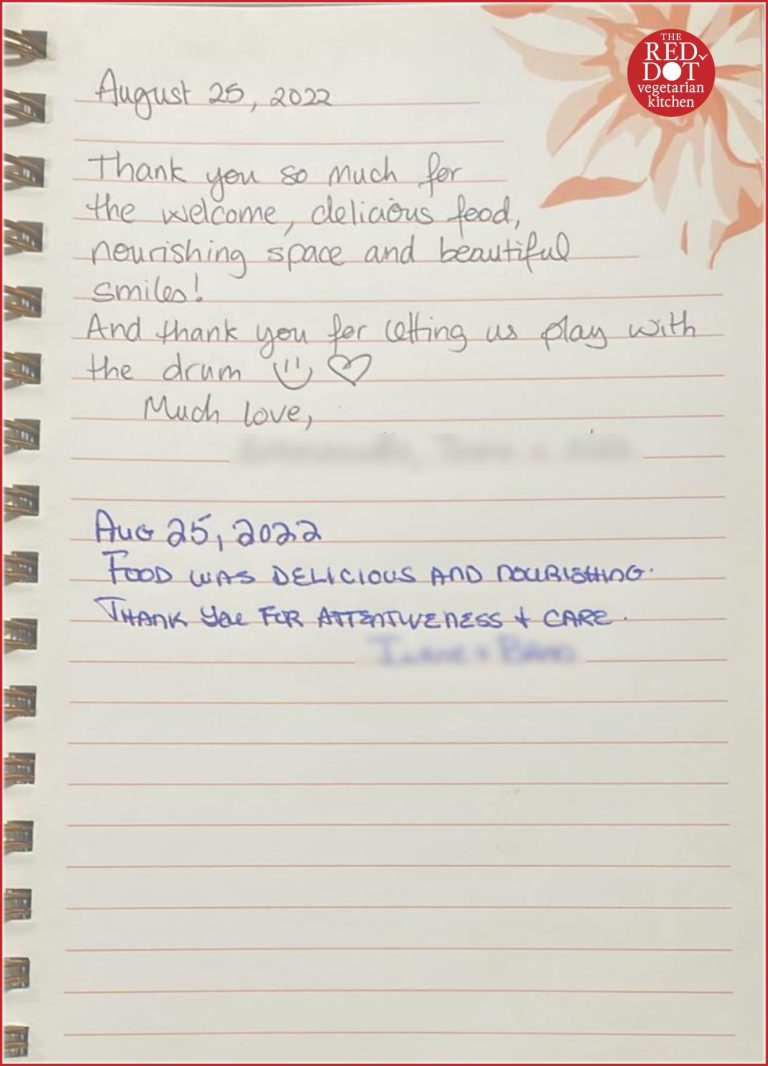 THE
RED
DOT
vegetarian
kitchen
August 25, 2022
Thank you so much for
the welcome, delicious food,
nourishing space and beautiful
smiles!
And thank you for letting us play with
the drum
Much love,
Aug 25, 2022
FOOD WAS DELICIOUS AND NOURISHING.
THANK YOU FOR ATTENTIVENESS + CARE.